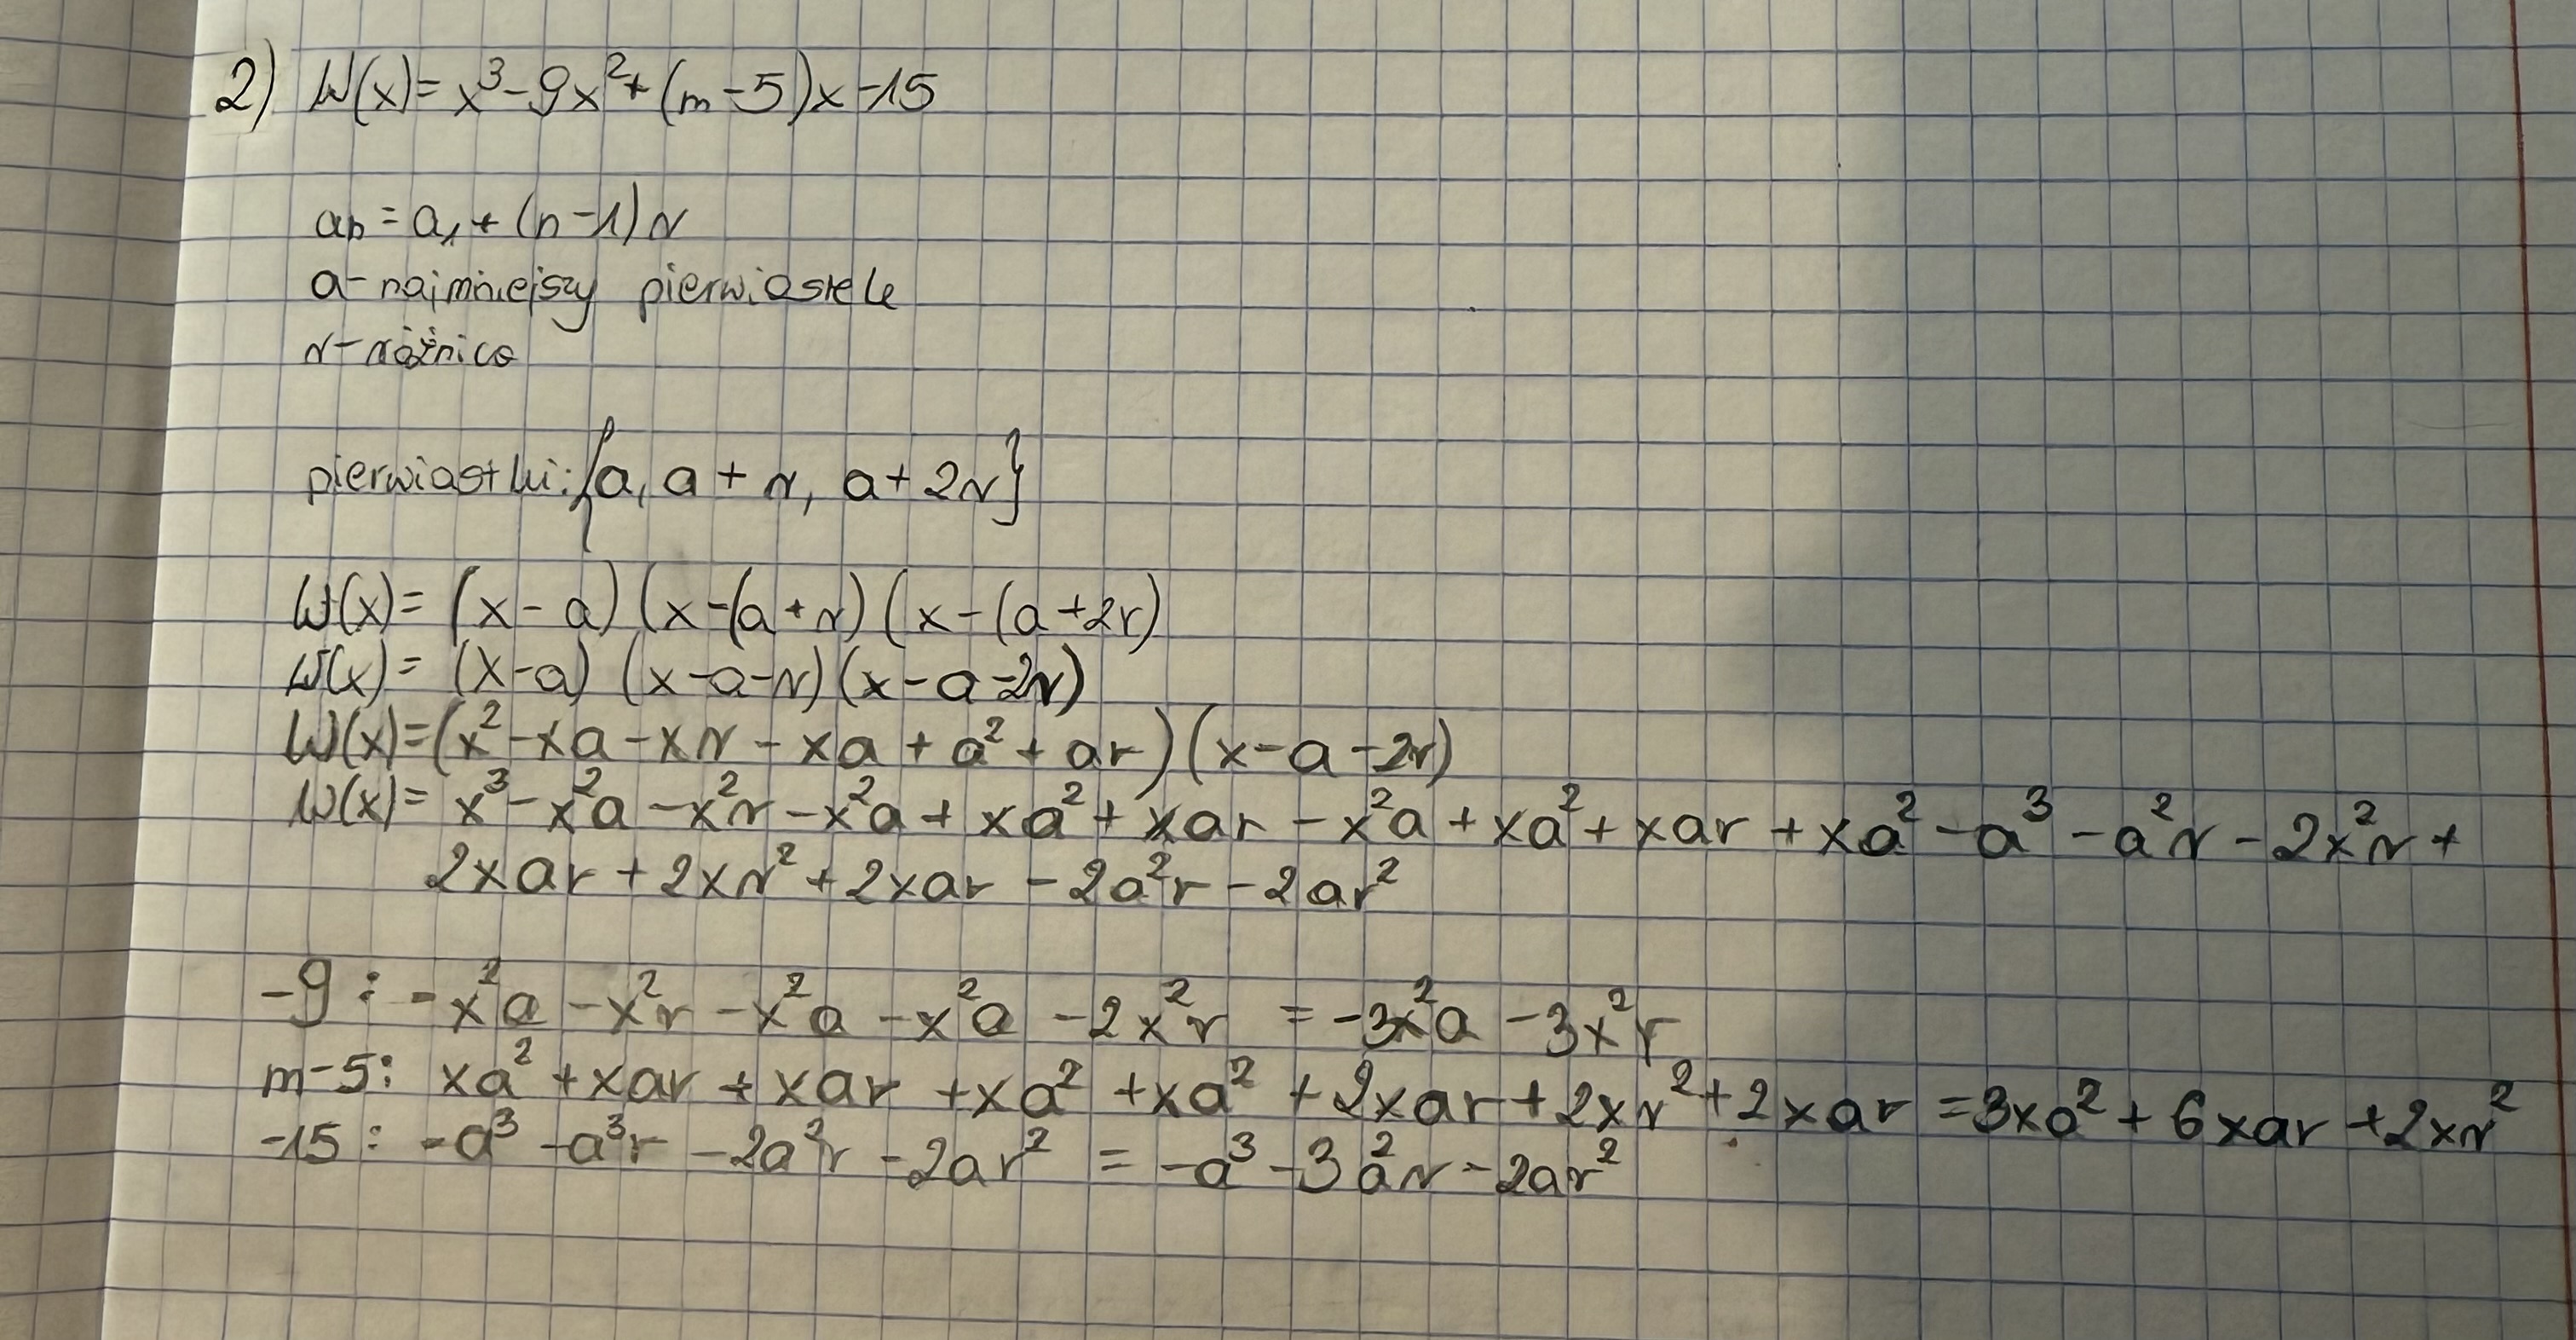 2) W(x)= x³-9x²+(m-5)x-15
an = a₁+(n-1)r
a-najmniejszy pierwiastek
r-różnica
pierwiastki: {a, a+r, a+2r}
W(x)= (x-a)(x-(a+r)(x-(a+2r)
W(x)= (x-a) (x-a-r)(x-a-2r)
W(x)=(x²-xa-xr-xa+a²+ar)(x-a-2r)
W(x)= x³-x²a-x²r-x²a+xa²+xar-x²a+xa²+xar+xa²-a³-a²r-2x²r+
2xar+2xr²+2xar-2a²r-2ar²
-9: -x²a-x²r-x²a-x²a-2x²r = -3x²a-3x²r
m-5: xa²+xar+xar+xa²+xa²+2xar+2xr²+2xar=3xa²+6xar+2xr²
-15: -a³-a³r-2a²r-2ar² = -a³-3a²r-2ar²